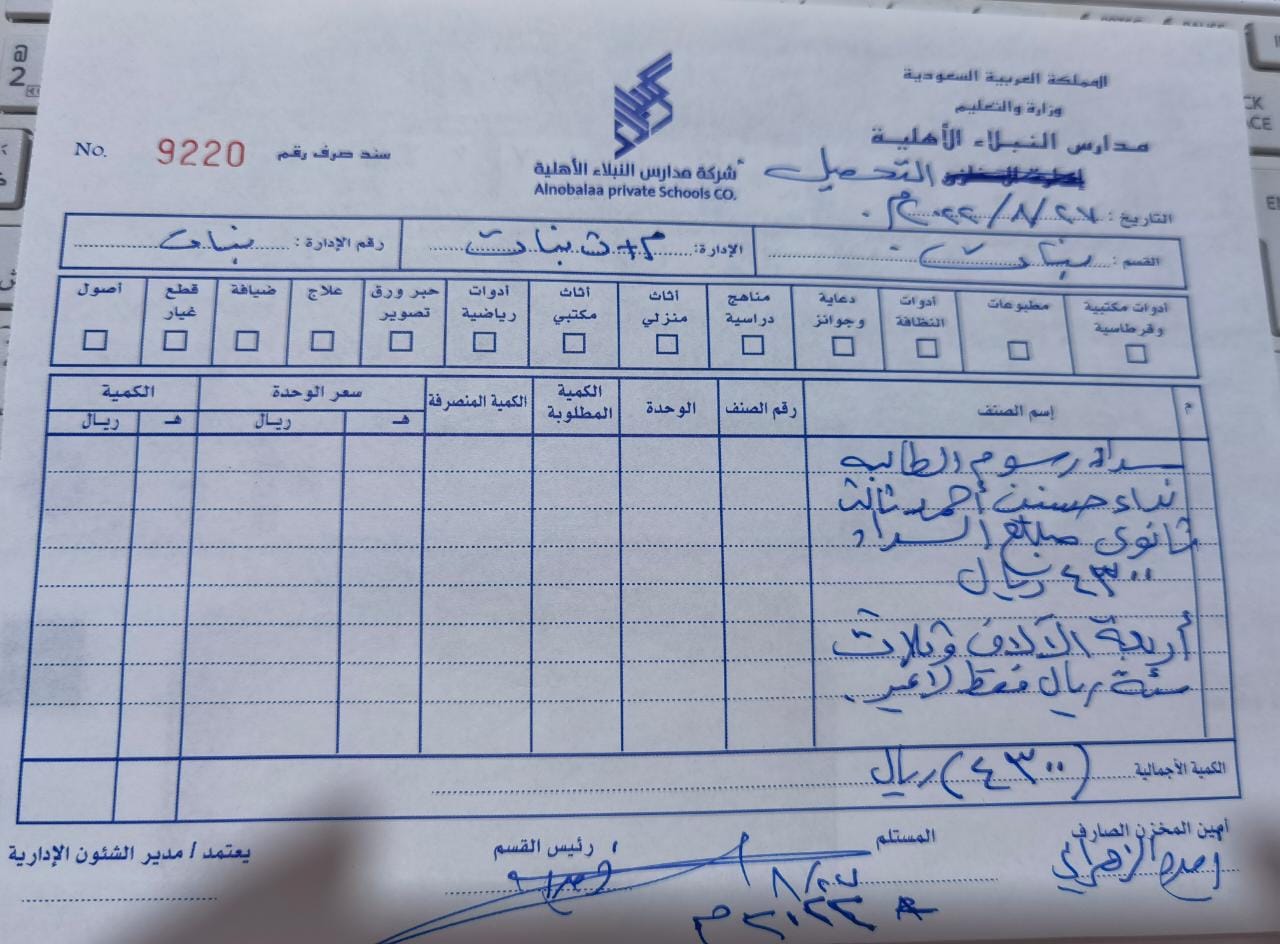 المملكة العربية السعودية
وزارة والتعليم
مدارس النبلاء الأهلية
التحصيل
التاريخ : ٢٠٢٢/٨/٢٧م
شركة مدارس النبلاء الأهلية
Alnobalaa private Schools CO.
سند صرف رقم 9220 No.
القسم : بنات الإدارة: م+ث بنات رقم الإدارة : بنات
أدوات مكتبية وقرطاسية
مطبوعات
أدوات النظافة
دعاية وجوائز
مناهج دراسية
أثاث منزلي
أثاث مكتبي
أدوات رياضية
حبر ورق تصوير
علاج
ضيافة
قطع غيار
أصول
م إسم الصنف رقم الصنف الوحدة الكمية المطلوبة الكمية المنصرفة سعر الوحدة الكمية
هـ ريال هـ ريال
سداد رسوم الطالبه
نداء حسن أحمد ثالث
ثانوي مبلغ السداد
٤٣٠٠ ريال
أربعة الآلاف وثلاث
مئة ريال فقط لاغير.
الكمية الأجمالية (٤٣٠٠) ريال
أمين المخزن الصارف المستلم رئيس القسم يعتمد / مدير الشئون الإدارية
الزهراني
٨/٢٧
٢٠٢٢م